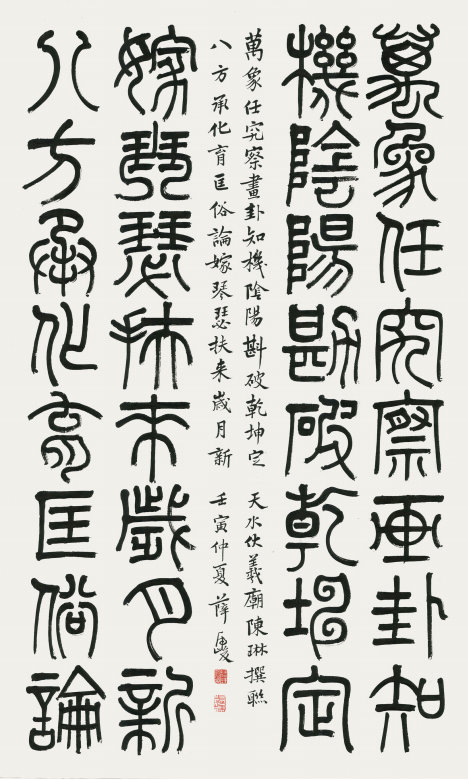 萬象任究察畫卦知
機陰陽勘破乾坤定
萬象任究察畫卦知機陰陽斟破乾坤定 天水伏羲廟陳琳撰聯
八方承化育匡俗論嫁琴瑟扶来歲月新 壬寅仲夏薛
八方承化育匡俗論
嫁琴瑟扶来歲月新